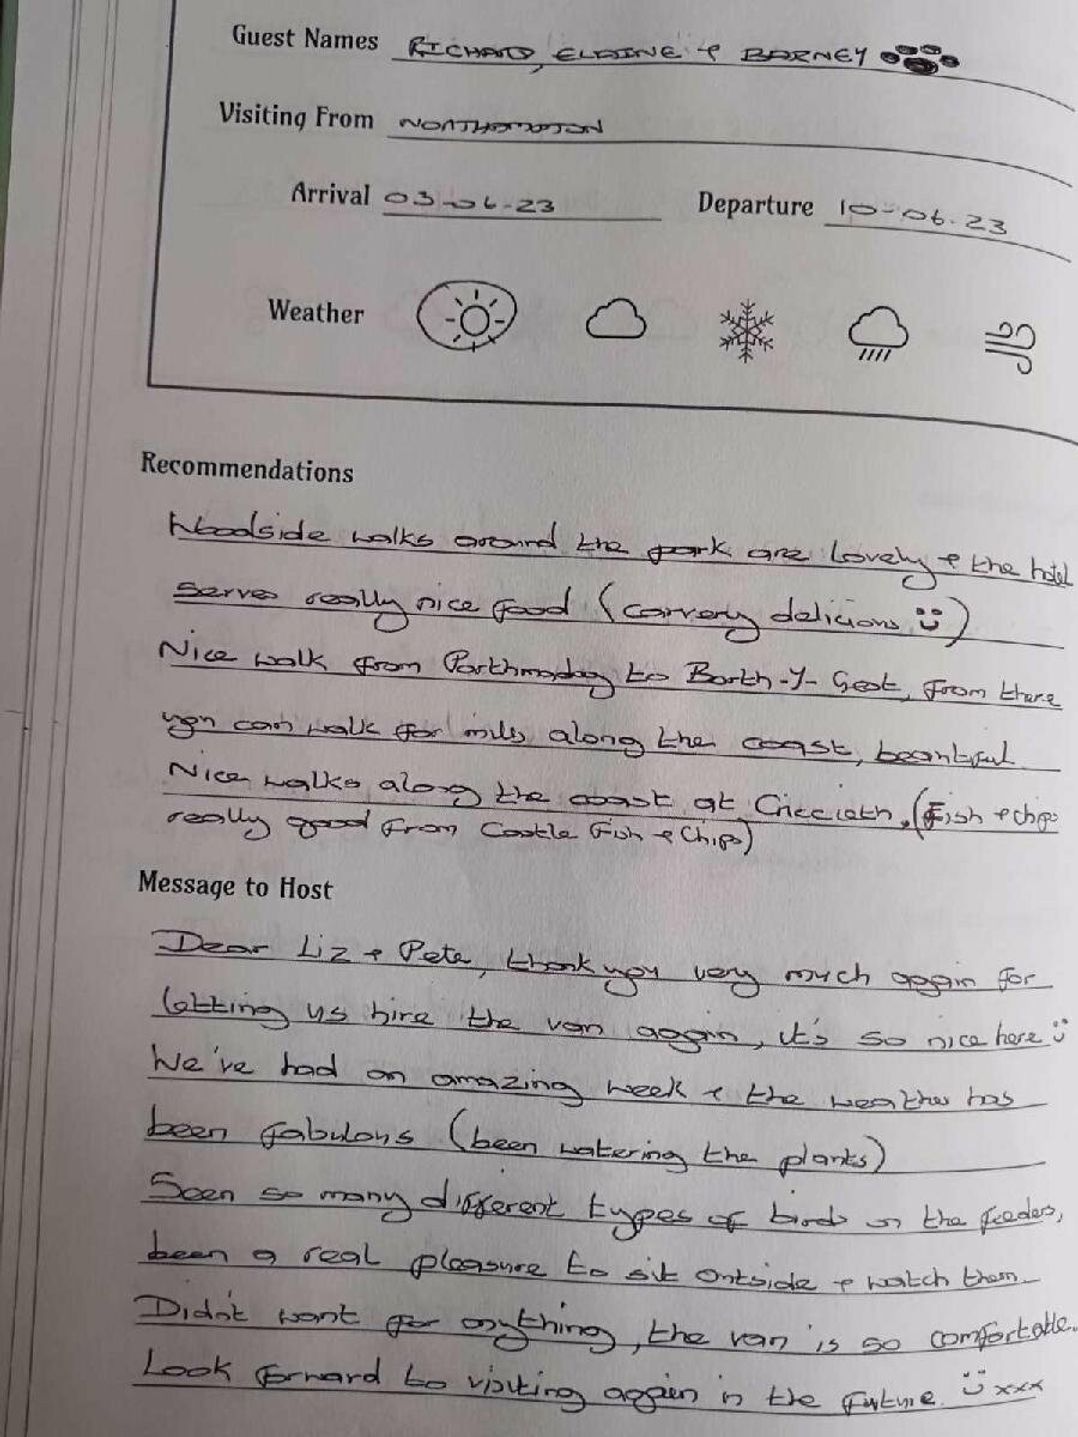 Guest Names RICHARD, ELAINE & BARNEY
Visiting From NORTHAMPTON
Arrival 03-06-23 Departure 10-06-23
Weather
Recommendations
Woodside walks around the park are lovely & the hotel
serves really nice food (carvery delicious)
Nice walk from Porthmadog to Borth-Y-Gest, from there
you can walk for miles along the coast, beautiful
Nice walks along the coast at Criccieth, (Fish & chips
really good from Castle Fish & Chips)
Message to Host
Dear Liz & Pete, thank you very much again for
letting us hire the van again, it's so nice here
We've had an amazing week & the weather has
been fabulous (been watering the plants)
Seen so many different types of birds on the feeders,
been a real pleasure to sit outside & watch them
Didn't want for anything, the van is so comfortable.
Look forward to visiting again in the future. xxx